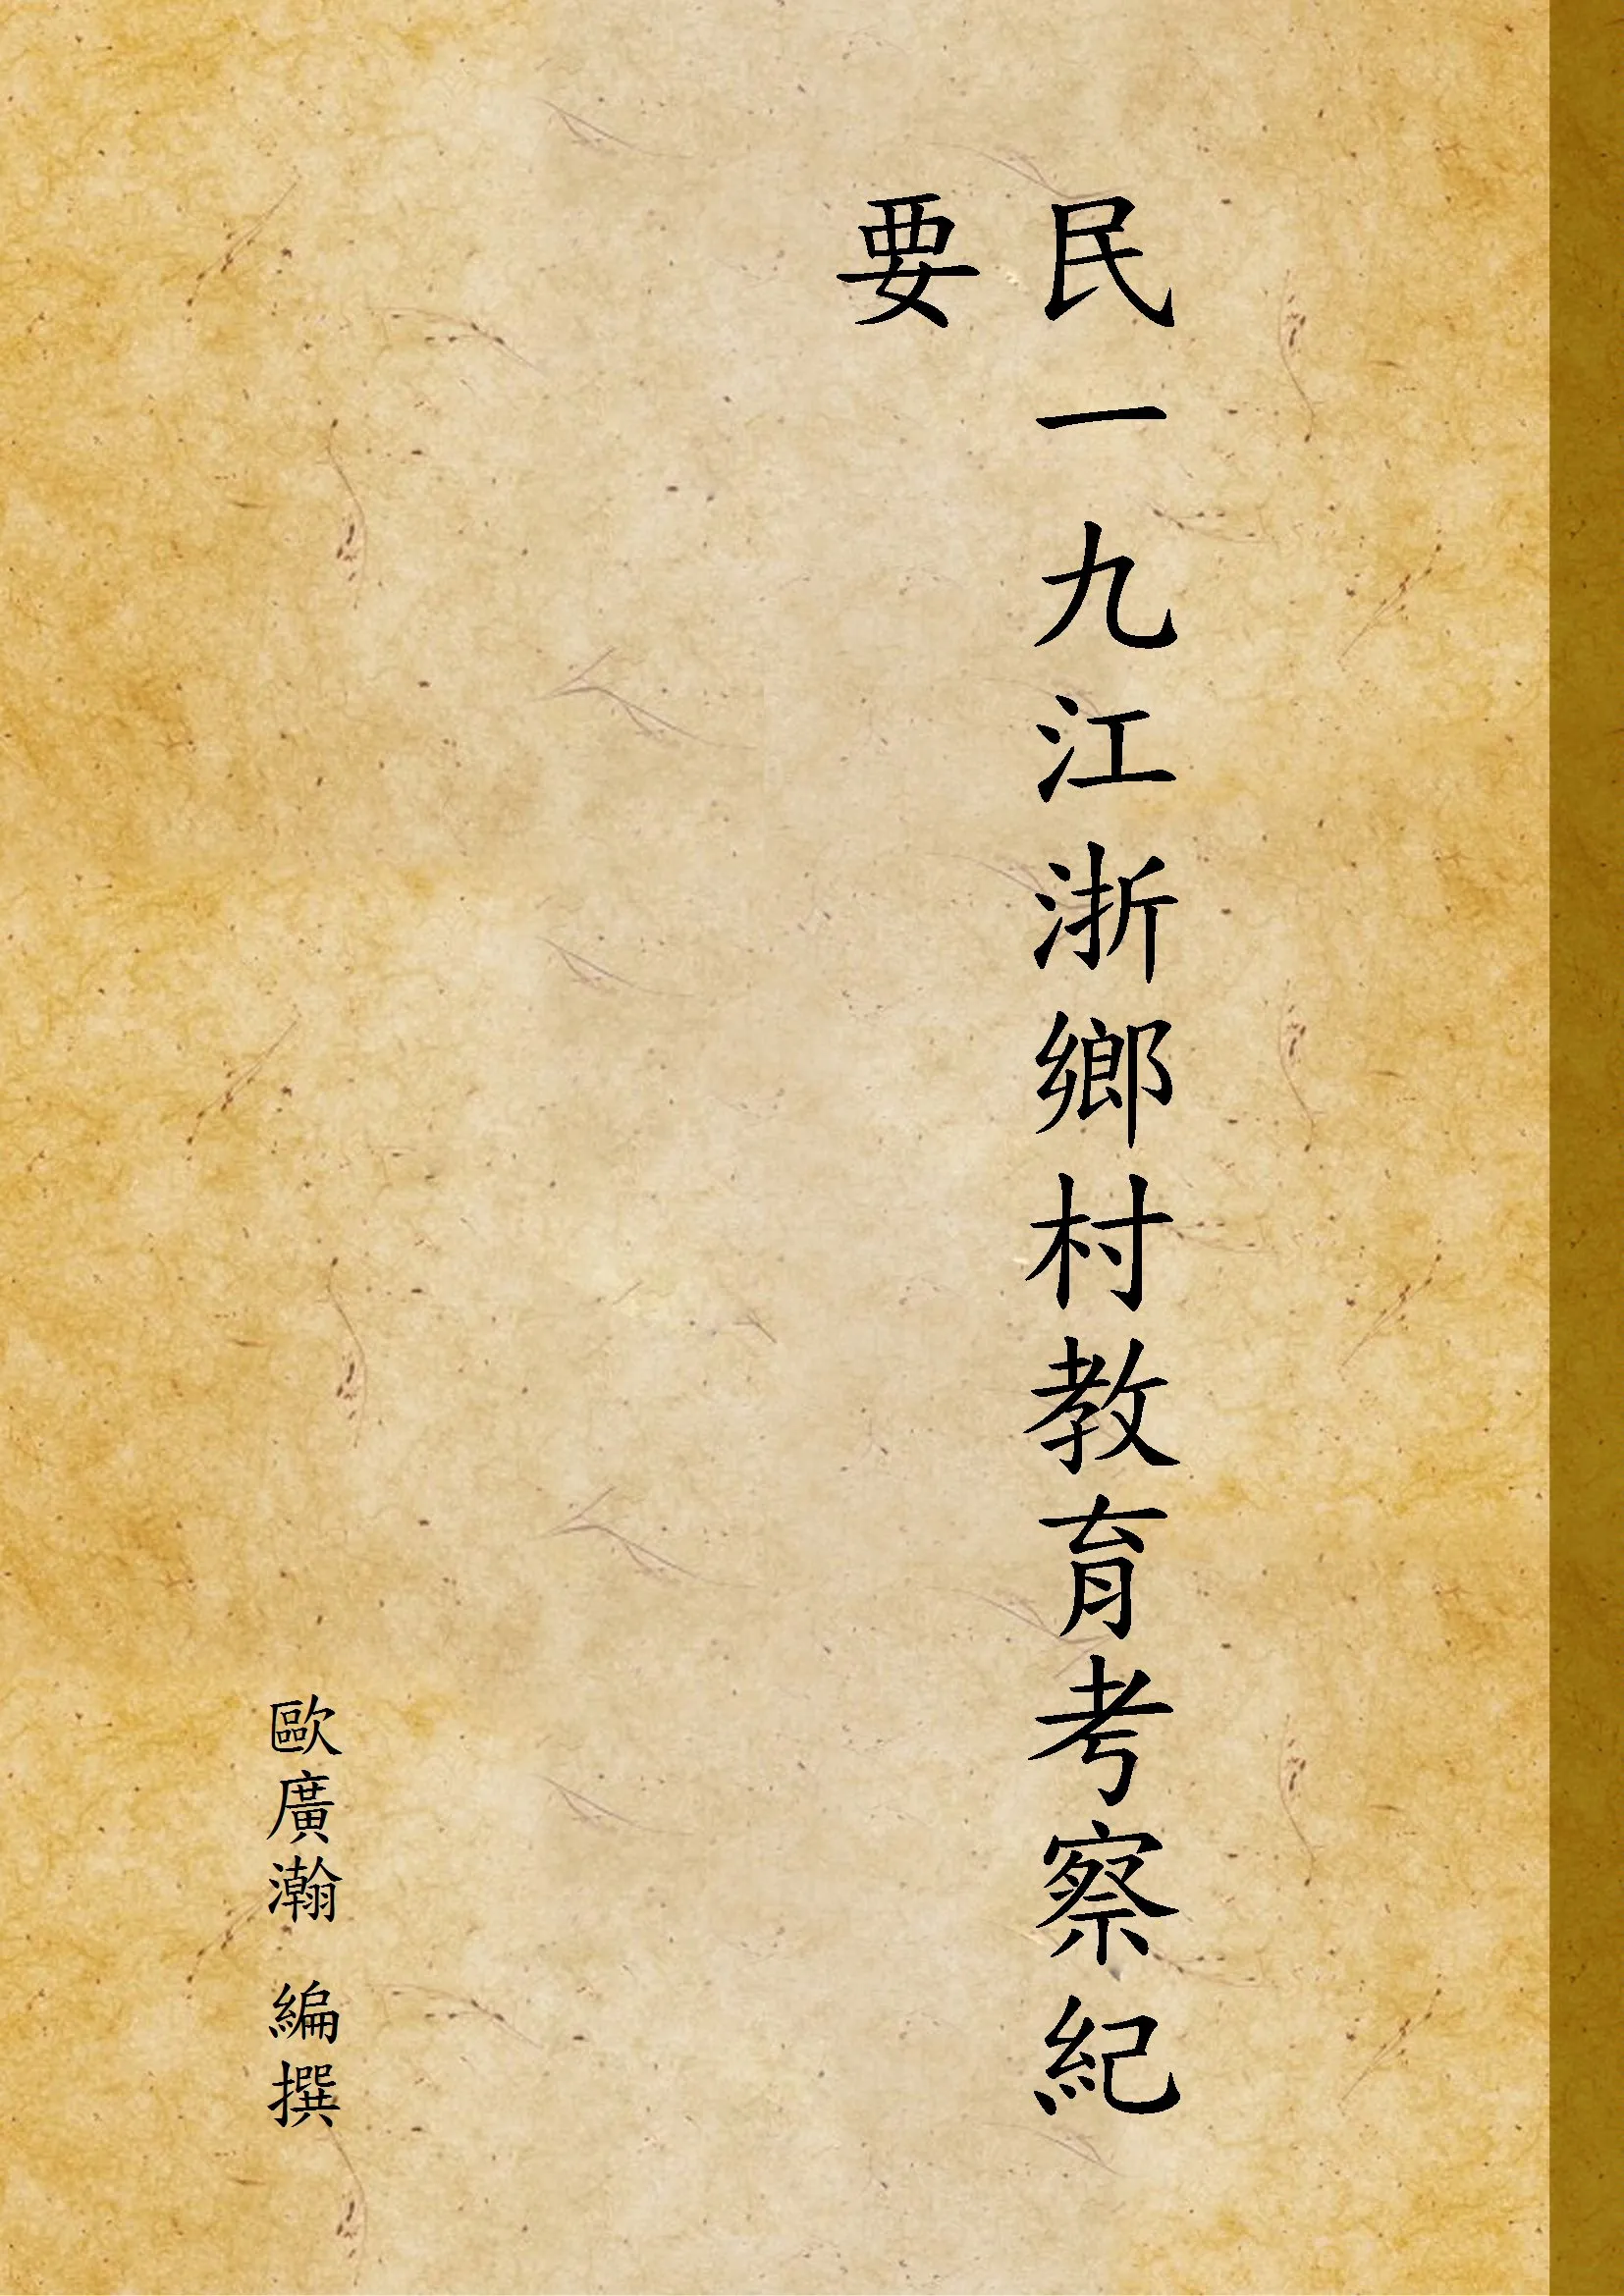 民一九江浙鄉村教育考察紀
要
歐廣瀚 編撰